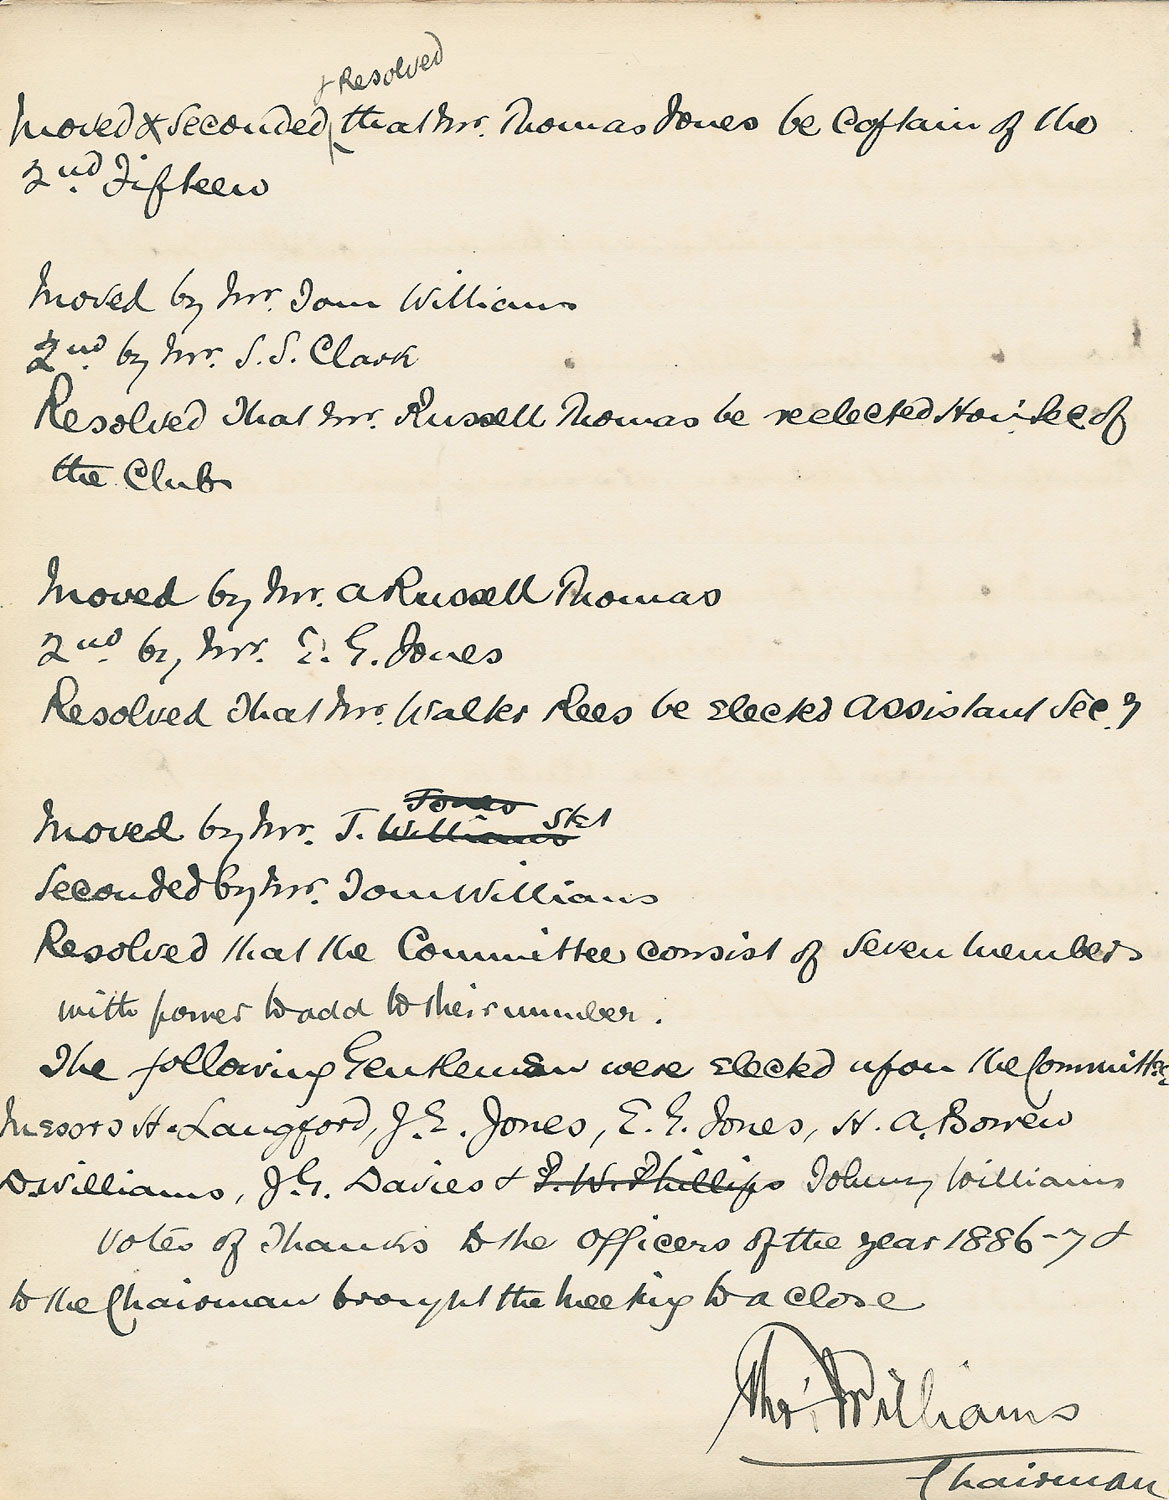 & Resolved
Moved & Seconded that Mr. Thomas Jones be Captain of the
2nd. Fifteen
Moved by Mr. Tom Williams
2nd. by Mr. S. S. Clark
Resolved That Mr. Russell Thomas be reelected Hon. Sec of
the Club
Moved by Mr. A Russell Thomas
2nd. by Mr. E. G. Jones
Resolved That Mr. Walter Rees be Elected Assistant Secy
Jones
Moved by Mr. T. Williams
Seconded by Mr. Tom Williams
Resolved that the Committee consist of Seven Members
with power to add to their number.
The following Gentlemen were Elected upon the Committee
Messrs H. Langford, J. E. Jones, E. G. Jones, H. A. Bowen
D. Williams, J. G. Davies & P. W. Phillips Johnny Williams
Votes of Thanks to the Officers of the year 1886-7 &
to the Chairman brought the Meeting to a close
Thos. Williams
Chairman